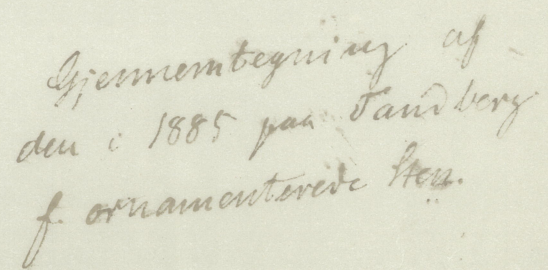 Gjennemtegning af
den i 1885 paa Tandberg
f. ornamenterede Sten.